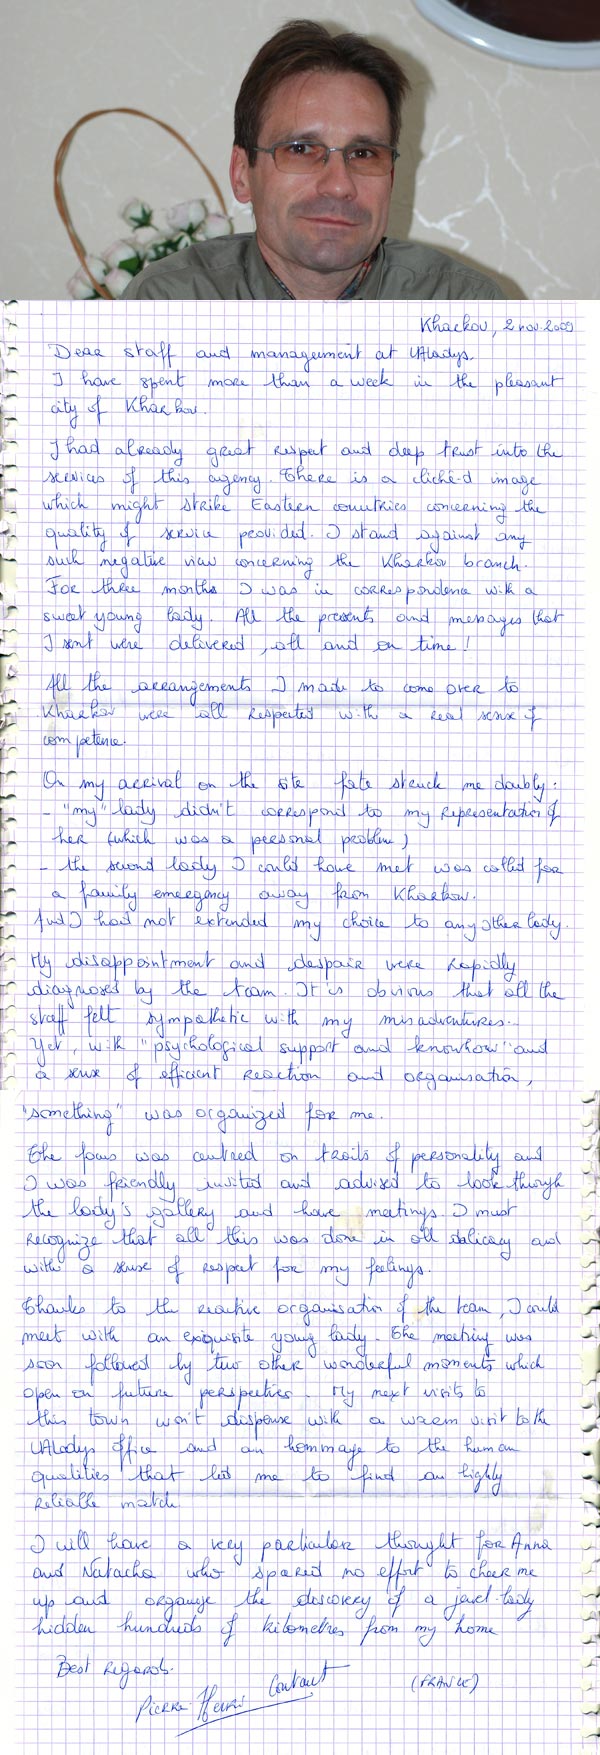 Kharkov, 2 nov. 2009
Dear staff and management at UAladys.
I have spent more than a week in the pleasant
city of Kharkov.
I had already great respect and deep trust into the
services of this agency. There is a cliché-d image
which might strike Eastern countries concerning the
quality of service provided. I stand against any
such negative view concerning the Kharkov branch.
For three months I was in correspondence with a
sweet young lady. All the presents and messages that
I sent were delivered, all and on time!
All the arrangements I made to come over to
Kharkov were all respected with a real sense of
competence.
On my arrival on the site fate struck me doubly:
- "my" lady didn't correspond to my representation of
her (which was a personal problem)
- the second lady I could have met was called for
a family emergency away from Kharkov.
And I had not extended my choice to any other lady.
My disappointment and despair were rapidly
diagnosed by the team. It is obvious that all the
staff felt sympathetic with my misadventures...
Yet, with "psychological support and knowhow" and
a sense of efficient reaction and organisation,
"something" was organized for me.
The focus was centred on traits of personality and
I was friendly invited and advised to look through
the lady's gallery and have meetings. I must
recognize that all this was done in all delicacy and
with a sense of respect for my feelings.
Thanks to the reactive organisation of the team, I could
meet with an exquisite young lady. The meeting was
soon followed by two other wonderful moments which
open on future perspectives. My next visits to
this town won't dispense with a warm visit to the
UAladys office and an hommage to the human
qualities that led me to find an highly
reliable match
I will have a very particular thought for Anna
and Natacha who spared no effort to cheer me
up and organize the discovery of a jewel-lady
hidden hundreds of kilometres from my home
Best regards.
Pierre-Henri Contant (FRANCE)